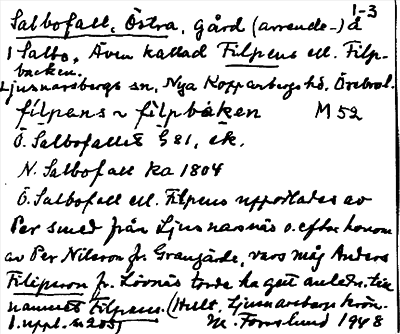 1-3
Salbofall, Östra, gård (arrende-) å
1 Salbo. Även kallad Filpens ell. Filp-
backen.
Ljusnarsbergs sn, Nya Kopparbergs hd, Örebro l.
filpens ~ filpbåken M 52
Ö. Salbofallet § 81, ek.
N. Salbofall ka 1804
Ö. Salbofall ell. Filpens upptogades av
Per smed från Ljusnarsnäs o. efter honom
av Per Nilsson fr. Grangärde, vars måg Anders
Filipsson fr. Lövnäs torde ha gett anledn. till
namnet Filpens. (Hult, Ljusnarsbergs krön.
1. uppl. s. 205) M. Forslund 1948